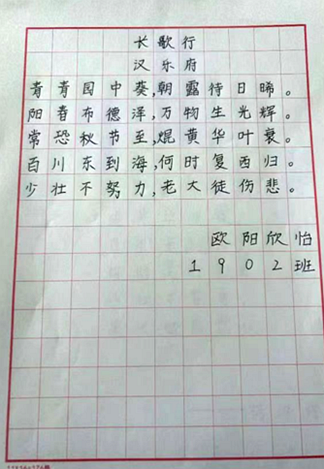 长歌行
汉乐府
青青园中葵朝露待日晞。
阳春布德泽,万物生光辉。
常恐秋节至,焜黄华叶衰。
百川东到海,何时复西归。
少壮不努力,老大徒伤悲。
欧阳欣怡
1902班